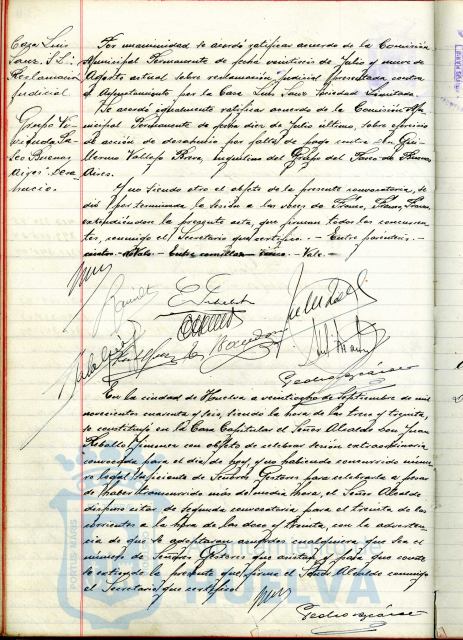 Casa Luis
Sanz. S. L.
Reclamación
judicial
Por unanimidad se acordó ratificar acuerdo de la Comisión
Municipal Permanente de fecha veintiseis de Julio y nueve de
Agosto actual sobre reclamación judicial formulada contra
el Ayuntamiento por la Casa Luis Sanz Sociedad Limitada.
Grupo Vi-
vienda Pa-
seo Buenos
Aires: Desa-
hucio
Se acordó igualmente ratificar acuerdo de la Comisión Mu-
nicipal Permanente de fecha diez de Julio último, sobre ejercicio
de acción de desahucio por falta de pago contra Don Gui-
llermo Vallejo, inquilino del Grupo del Paseo de Buenos
Aires.
Y no siendo otro el objeto de la presente convocatoria, se
dió por terminada la sesión a las voces de Franco, Franco, Franco,
extendiéndose la presente acta, que firman todos los concurren-
tes, conmigo el Secretario que certifico. - Entre paréntesis. -
Vale. - Entre comillas - Vale. -
En la ciudad de Huelva a veintiocho de Septiembre de mil
novecientos cuarenta y seis, siendo la hora de las trece y treinta,
se constituyó en la Casa Capitular el Señor Alcalde Don Juan
Rebollo Jimenez con objeto de celebrar sesión extraordinaria
convocada para el día de hoy, y no habiendo concurrido núme-
ro legal suficiente de Señores Gestores para celebrarla a pesar
de haber transcurrido más de media hora, el Señor Alcalde
dispuso citar de segunda convocatoria para el treinta de los
corrientes a la hora de las doce y treinta, con la adverten-
cia de que se adoptaran acuerdos cualquiera que sea el
número de Señores Gestores que asistan y para que conste
se extiende la presente que firma el Señor Alcalde conmigo
el Secretario que certifico.
PORTUS MARIS
HUELVA